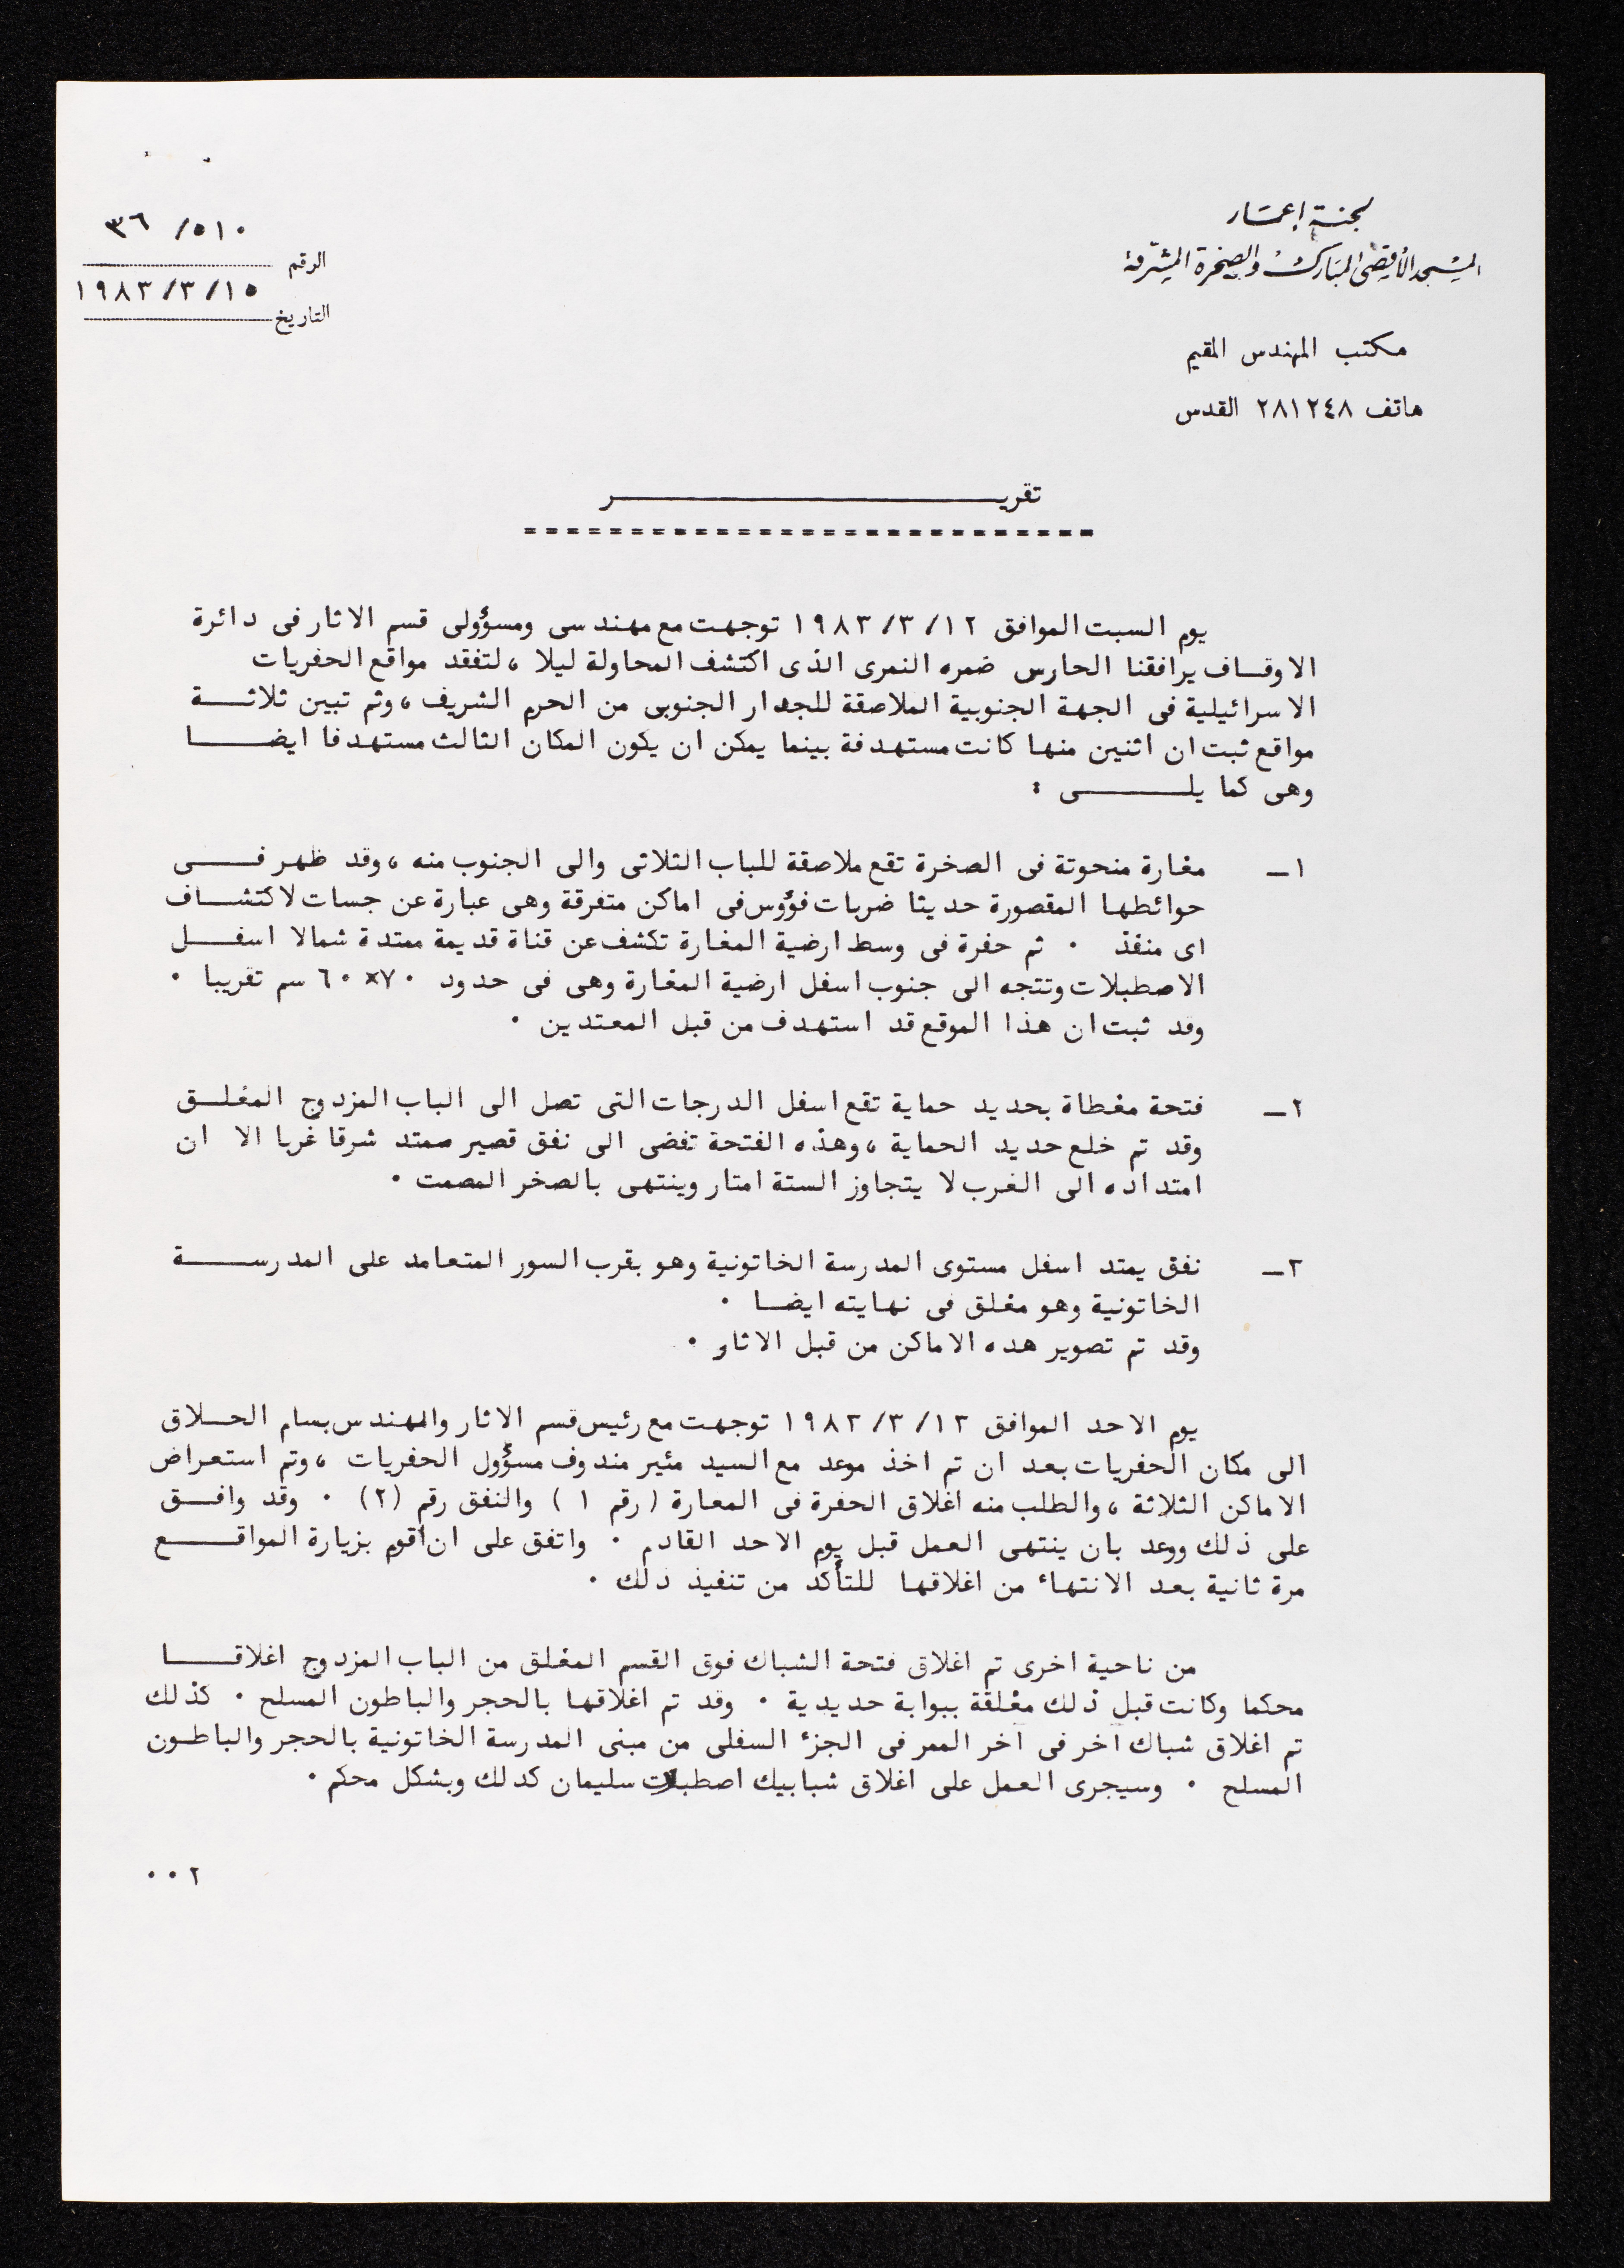 لجنة إعمار
المسجد الأقصى المبارك والصخرة المشرفة
مكتب المهندس المقيم
هاتف ٢٨١٢٤٨ القدس
٣٦ /٥١٠
الرقم
١٩٨٣/٣/١٥
التاريخ
تقريـــــــــر
===========================
يوم السبت الموافق ١٩٨٣/٣/١٢ توجهت مع مهندسى ومسؤولى قسم الاثار فى دائرة
الاوقـاف يرافقنا الحارس ضمره النمرى الذى اكتشف المحاولة ليلا ، لتفقد مواقع الحفريات
الاسرائيلية فى الجهة الجنوبية الملاصقة للجدار الجنوبى من الحرم الشريف ، وثم تبين ثلاثـــة
مواقع ثبت ان اثنين منها كانت مستهدفة بينما يمكن ان يكون المكان الثالث مستهدفا ايضـــا
وهى كما يلــــــى :
١ـ مغارة منحوتة فى الصخرة تقع ملاصقة للباب الثلاثى والى الجنوب منه ، وقد ظهر فــــى
حوائطها المقصورة حديثا ضربات فؤوس فى اماكن متفرقة وهى عبارة عن جسات لاكتشـــاف
اى منفذ ٠ ثم حفرة فى وسط ارضية المغارة تكشف عن قناة قديمة ممتدة شمالا اسفـــل
الاصطبلات وتتجه الى جنوب اسفل ارضية المغارة وهى فى حدود ٧٠×٦٠ سم تقريبا ٠
وقد ثبت ان هذا الموقع قد استهدف من قبل المعتدين ٠
٢ـ فتحة مغطاة بحديد حماية تقع اسفل الدرجات التى تصل الى الباب المزدوج المغلــق
وقد تم خلع حديد الحماية ، وهذه الفتحة تفضى الى نفق قصير ممتد شرقا غربا الا ان
امتداده الى الغرب لا يتجاوز الستة امتار وينتهى بالصخر المصمت ٠
٣ـ نفق يمتد اسفل مستوى المدرسة الخاتونية وهو بقرب السور المتعامد على المدرســـة
الخاتونية وهو مغلق فى نهايته ايضـا ٠
وقد تم تصوير هده الاماكن من قبل الاثار ٠
يوم الاحد الموافق ١٩٨٣/٣/١٣ توجهت مع رئيس قسم الاثار والمهندس بسام الحـــلاق
الى مكان الحفريات بعد ان تم اخذ موعد مع السيد مئير مندوف مسؤول الحفريات ، وتم استعراض
الاماكن الثلاثة ، والطلب منه اغلاق الحفرة فى المعارة ( رقم ١ ) والنفق رقم (٢) ٠ وقد وافــق
على ذلك ووعد بان ينتهى العمل قبل يوم الاحد القادم ٠ واتفق على ان اقوم بزيارة المواقـــع
مرة ثانية بعد الانتهاء من اغلاقها للتأكد من تنفيذ دلك ٠
من ناحية اخرى تم اغلاق فتحة الشباك فوق القسم المغلق من الباب المزدوج اغلاقـــا
محكما وكانت قبل ذلك مغلقة ببوابة حديدية ٠ وقد تم اغلاقها بالحجر والباطون المسلح ٠ كذلك
تم اغلاق شباك آخر فى آخر الممر فى الجزء السفلى من مبنى المدرسة الخاتونية بالحجر والباطـون
المسلح ٠ وسيجرى العمل على اغلاق شبابيك اصطبلات سليمان كدلك وبشكل محكم ٠
٢ ٠ ٠